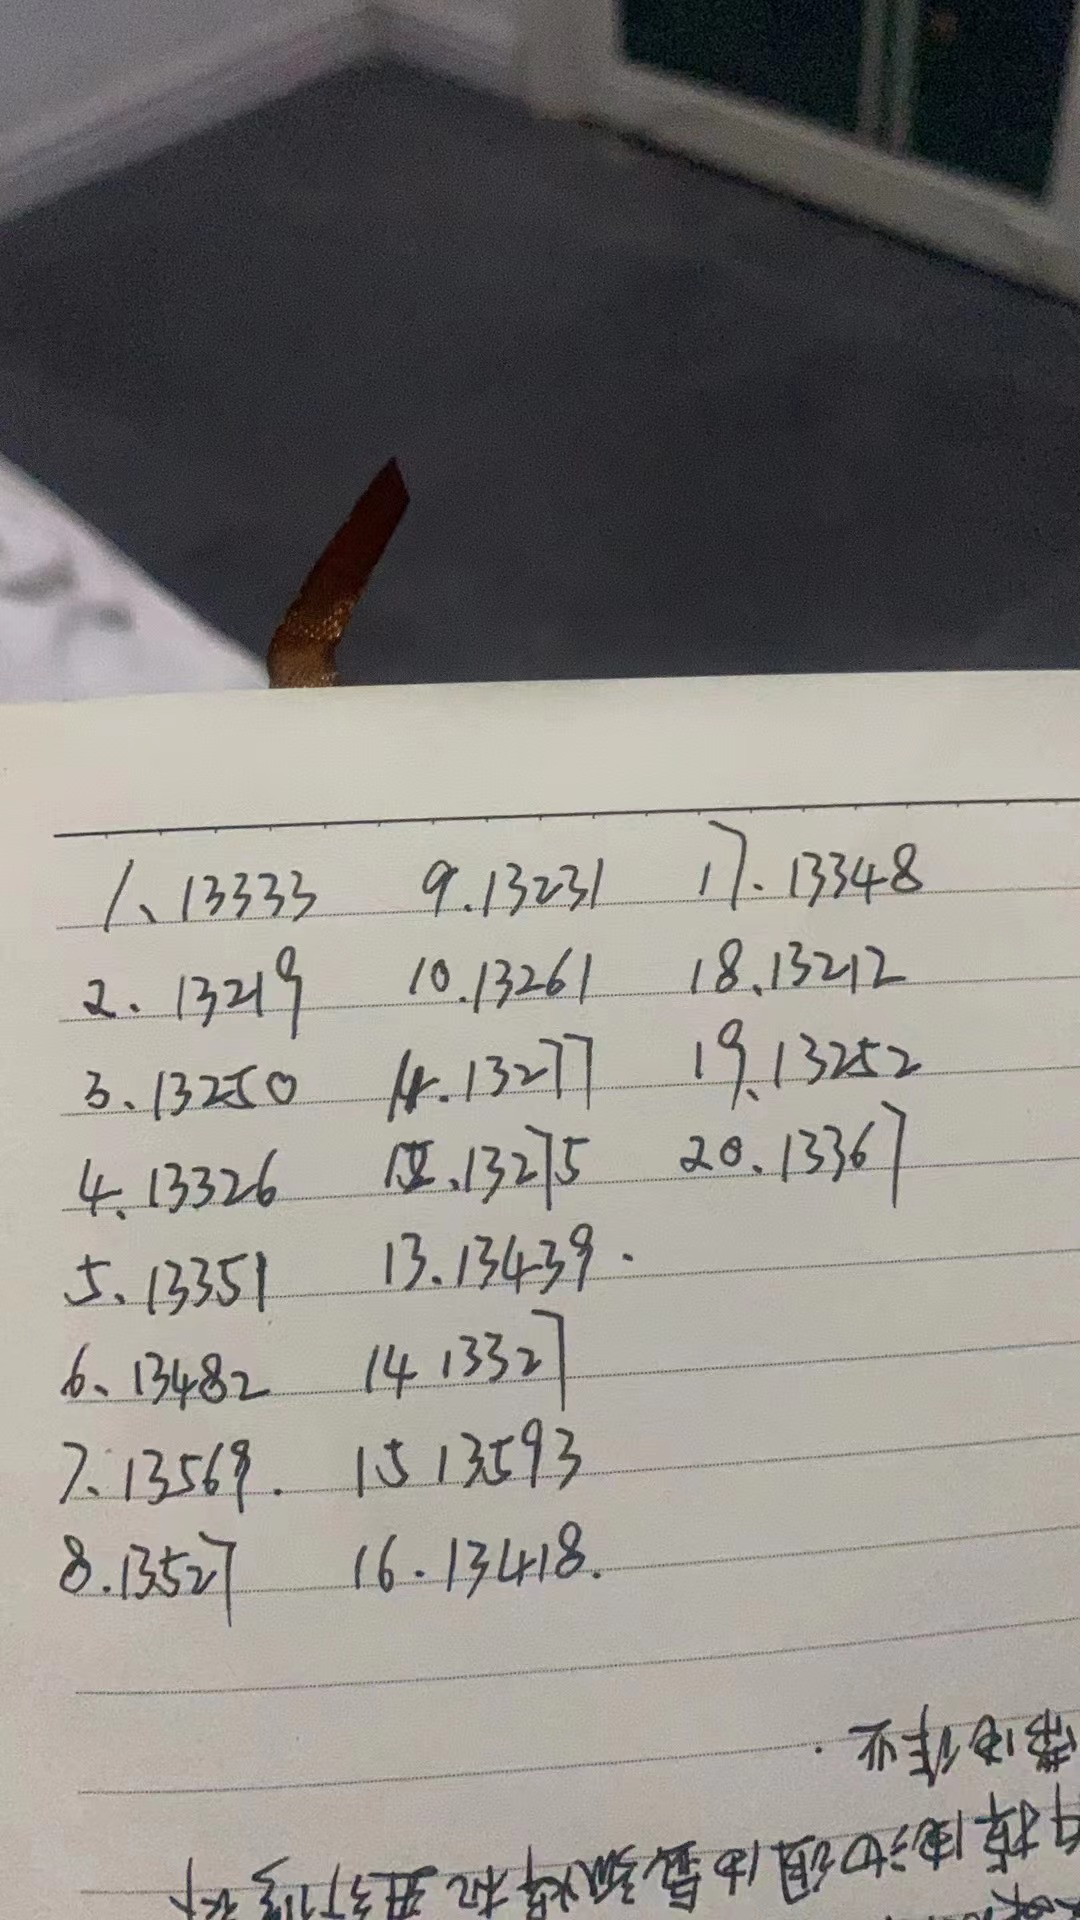 1、13333
2、13219
3、13250
4、13326
5、13351
6、13482
7、13569.
8.13527
9.13231
10.13261
11.13277
12.13275
13.13439.
14 13327
15 13593
16.13418.
17.13348
18、13212
19、13252
20.13367